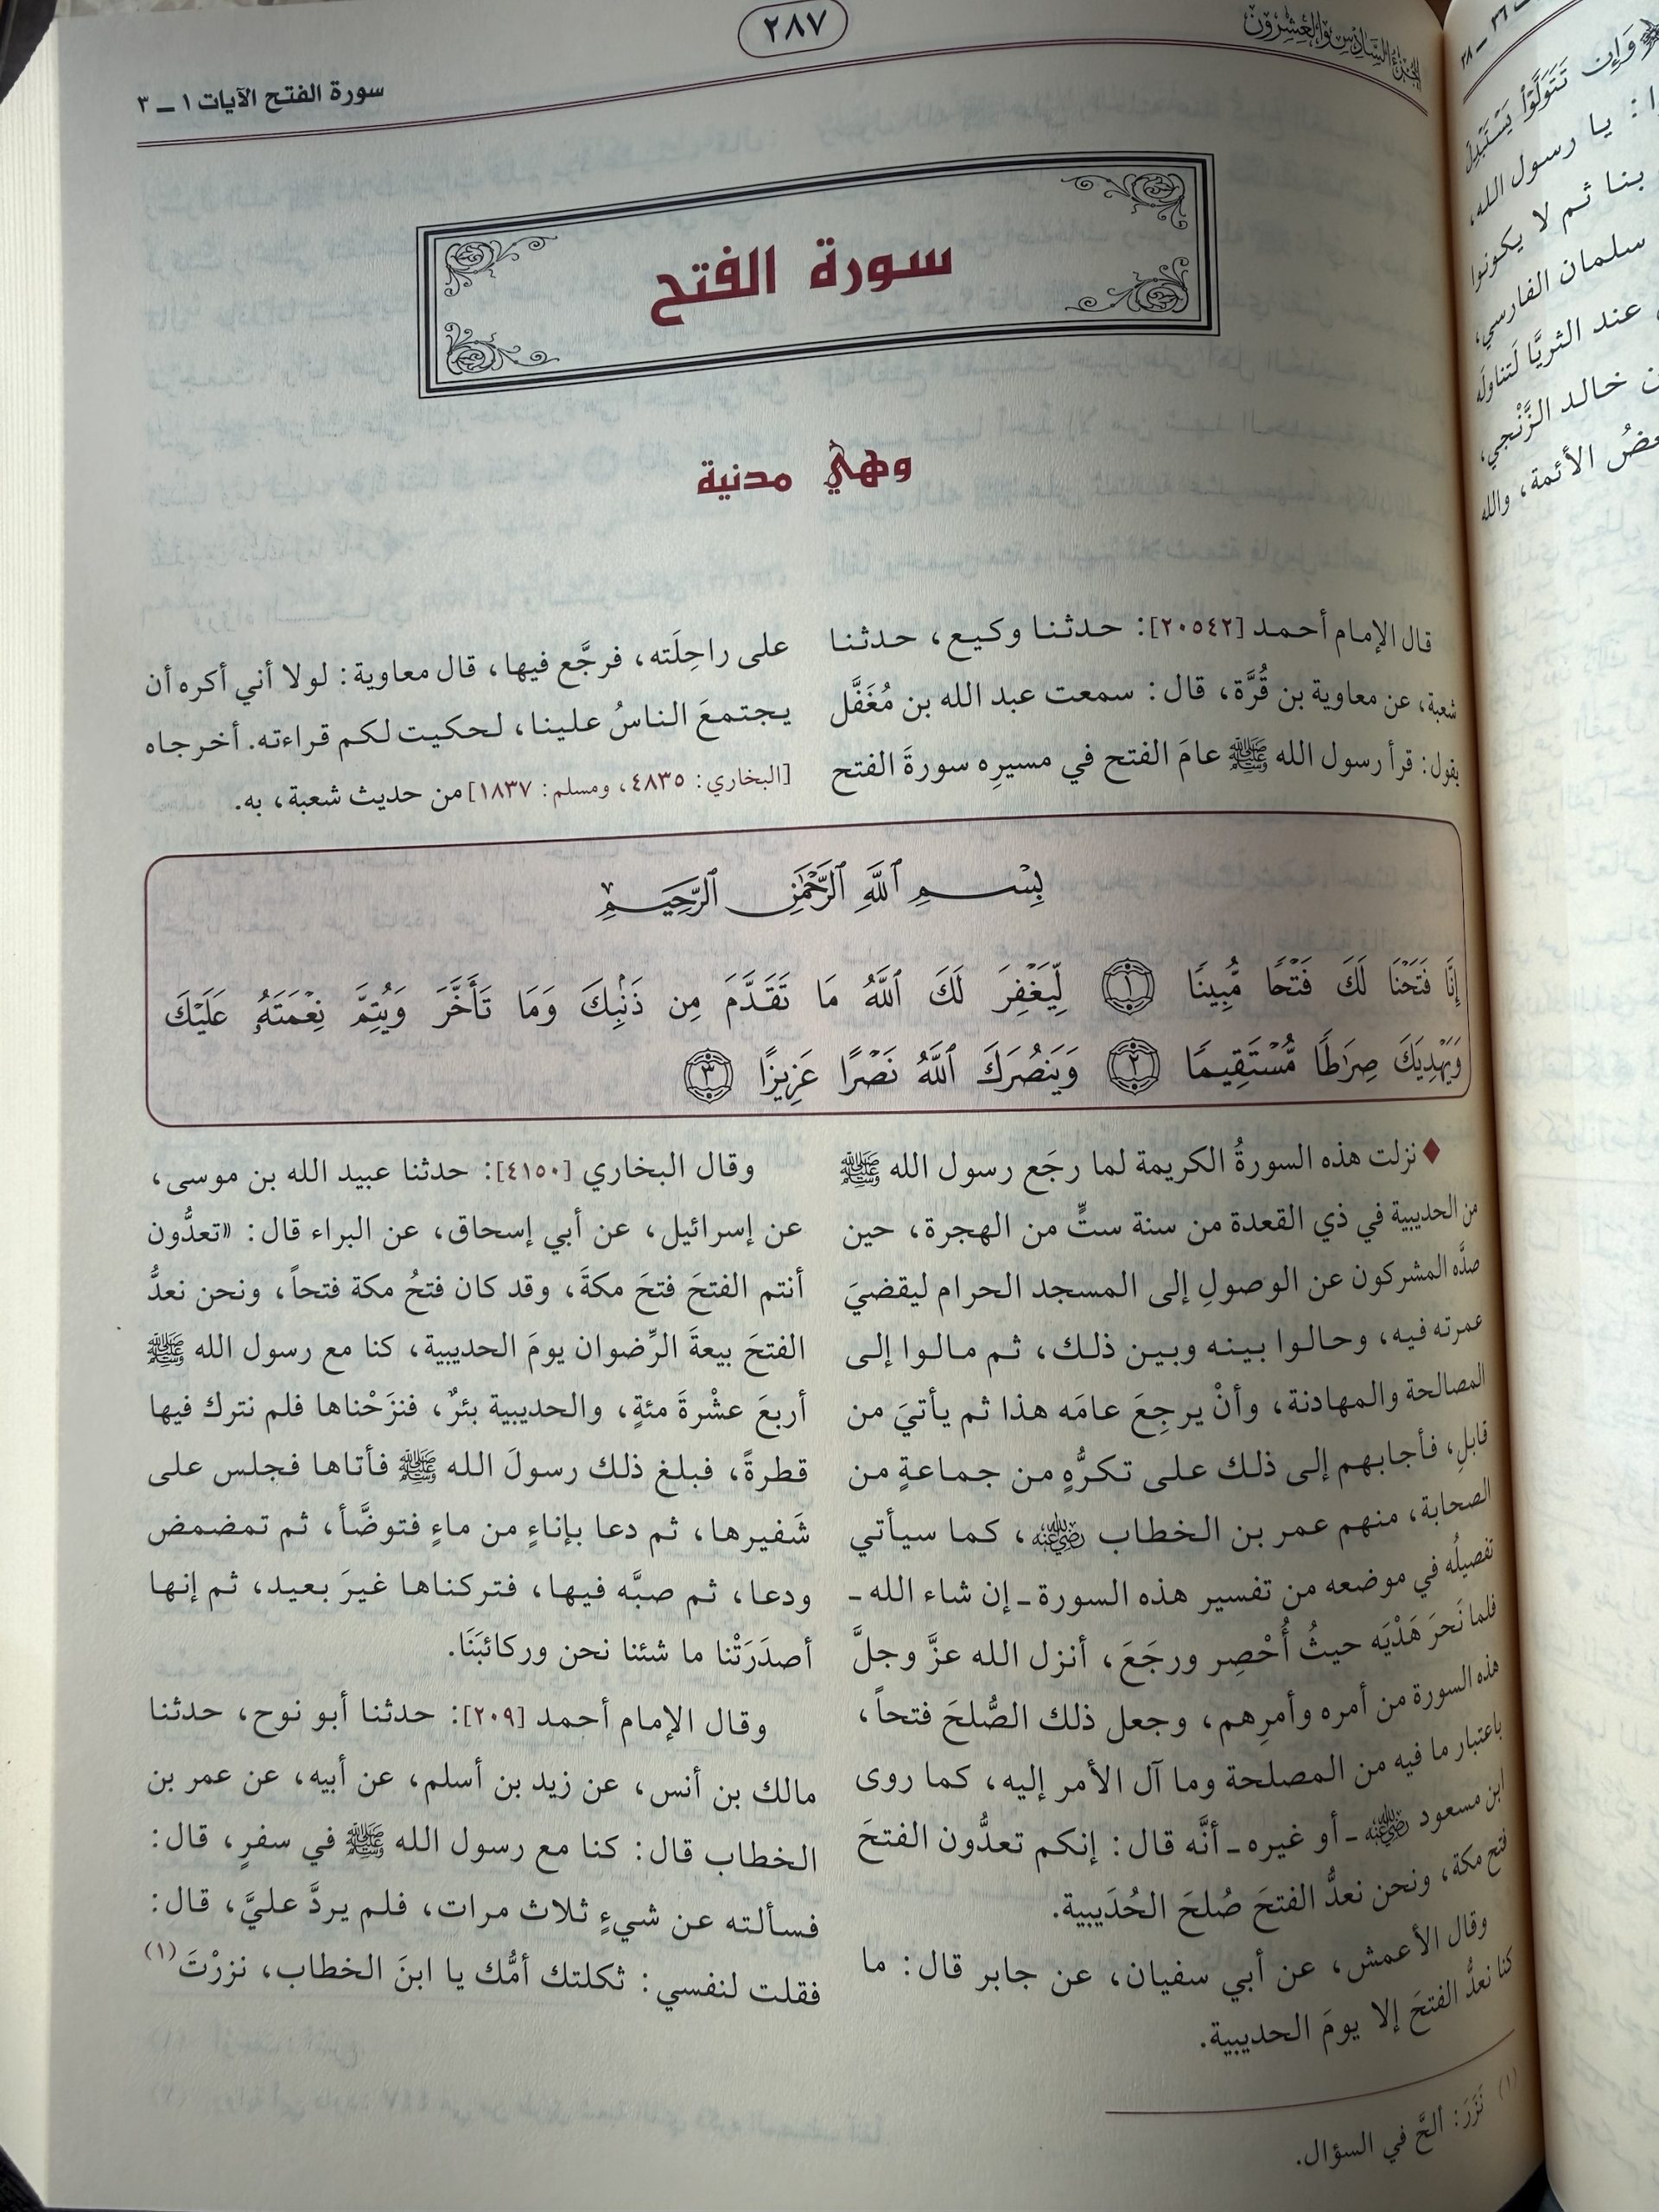 الجزء السادس والعشرون
٢٨٧
سورة الفتح الآيات ١ ــ ٣
سورة الفتح
وهي مدنية
قال الإمام أحمد [٢٠٥٤٢]: حدثنا وكيع، حدثنا
شعبة، عن معاوية بن قُرَّة، قال: سمعت عبد الله بن مُغَفَّل
يقول: قرأ رسول الله ﷺ عامَ الفتح في مسيرِه سورةَ الفتح
على راحِلَته، فرجَّع فيها، قال معاوية: لولا أني أكره أن
يجتمعَ الناسُ علينا، لحكيت لكم قراءته. أخرجاه
[البخاري: ٤٨٣٥، ومسلم: ١٨٣٧] من حديث شعبة، به.
بِسْمِ ٱللَّهِ ٱلرَّحْمَٰنِ ٱلرَّحِيمِ
إِنَّا فَتَحْنَا لَكَ فَتْحًا مُّبِينًا ١ لِّيَغْفِرَ لَكَ ٱللَّهُ مَا تَقَدَّمَ مِن ذَنۢبِكَ وَمَا تَأَخَّرَ وَيُتِمَّ نِعْمَتَهُۥ عَلَيْكَ
وَيَهْدِيَكَ صِرَٰطًا مُّسْتَقِيمًا ٢ وَيَنصُرَكَ ٱللَّهُ نَصْرًا عَزِيزًا ٣
♦ نزلت هذه السورةُ الكريمة لما رجَع رسول الله ﷺ
من الحديبية في ذي القعدة من سنة ستٍّ من الهجرة، حين
صدَّه المشركون عن الوصولِ إلى المسجد الحرام ليقضيَ
عمرته فيه، وحالوا بينه وبين ذلك، ثم مالوا إلى
المصالحة والمهادنة، وأنْ يرجِعَ عامَه هذا ثم يأتيَ من
قابلِ، فأجابهم إلى ذلك على تكرُّهٍ من جماعةٍ من
الصحابة، منهم عمر بن الخطاب رضي الله عنه، كما سيأتي
تفصيلُه في موضعه من تفسير هذه السورة ـ إن شاء الله ـ
فلما نَحرَ هَدْيَه حيثُ أُحْصِر ورجَعَ، أنزل الله عزَّ وجلَّ
هذه السورة من أمره وأمرِهم، وجعل ذلك الصُّلحَ فتحاً،
باعتبار ما فيه من المصلحة وما آل الأمر إليه، كما روى
ابن مسعود رضي الله عنه ـ أو غيره ـ أنَّه قال: إنكم تعدُّون الفتحَ
فتح مكة، ونحن نعدُّ الفتحَ صُلحَ الحُدَيبية.
وقال الأعمش، عن أبي سفيان، عن جابر قال: ما
كنا نعدُّ الفتحَ إلا يومَ الحديبية.
وقال البخاري [٤١٥٠]: حدثنا عبيد الله بن موسى،
عن إسرائيل، عن أبي إسحاق، عن البراء قال: «تعدُّون
أنتم الفتحَ فتحَ مكةَ، وقد كان فتحُ مكة فتحاً، ونحن نعدُّ
الفتحَ بيعةَ الرِّضوان يومَ الحديبية، كنا مع رسول الله ﷺ
أربعَ عشْرةَ مئةٍ، والحديبية بئرٌ، فنزَحْناها فلم نترك فيها
قطرةً، فبلغ ذلك رسولَ الله ﷺ فأتاها فجلس على
شَفيرها، ثم دعا بإناءٍ من ماءٍ فتوضَّأ، ثم تمضمض
ودعا، ثم صبَّه فيها، فتركناها غيرَ بعيد، ثم إنها
أصدَرَتْنا ما شئنا نحن وركائبَنَا.
وقال الإمام أحمد [٢٠٩]: حدثنا أبو نوح، حدثنا
مالك بن أنس، عن زيد بن أسلم، عن أبيه، عن عمر بن
الخطاب قال: كنا مع رسول الله ﷺ في سفرٍ، قال:
فسألته عن شيءٍ ثلاث مرات، فلم يردَّ عليَّ، قال:
فقلت لنفسي: ثكلتك أمُّك يا ابنَ الخطاب، نزرْتَ(١)
(١) نَزَرَ: ألحَّ في السؤال.
وَإِن تَتَوَلَّوْا۟ يَسْتَبْدِلْ
يا رسول الله،
بنا ثم لا يكونوا
سلمان الفارسي،
عند الثريَّا لَتناولَه
خالد الزَّنْجي،
الأئمة، والله